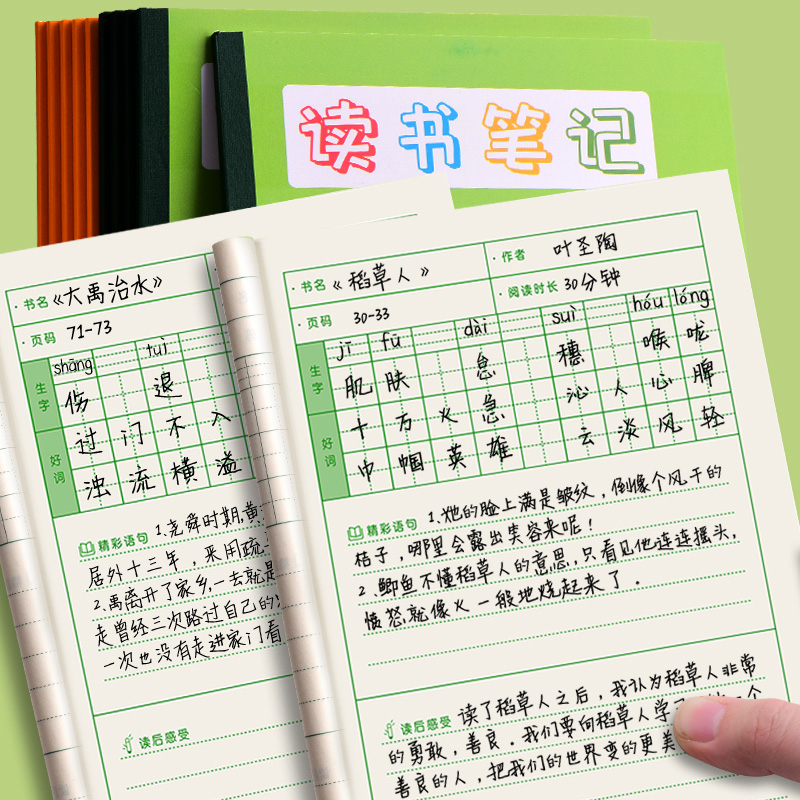 读书笔记
·书名《大禹治水》
·页码 71-73
生字
shāng tuì
伤 退
好词
过门不入
浊流横溢
精彩语句 1.尧舜时期,黄
居外十三年,采用疏
2.禹离开了家乡,一去就是
走曾经三次路过自己的
一次也没有走进家门看
读后感受
·书名《稻草人》
·作者 叶圣陶
·页码 30-33
·阅读时长 30分钟
生字
jī fū dài suì hóu lóng
肌肤 怠 穗 喉咙
好词
十万火急 沁人心脾
巾帼英雄 云淡风轻
精彩语句 1.她的脸上满是皱纹,倒像个风干的
桔子,哪里会露出笑容来呢!
2.鲫鱼不懂稻草人的意思,只看见他连连摇头,
愤怒就像火一般地烧起来了.
读后感受 读了稻草人之后,我认为稻草人非常
的勇敢,善良.我们要向稻草人学 一个
善良的人,把我们的世界变的更美